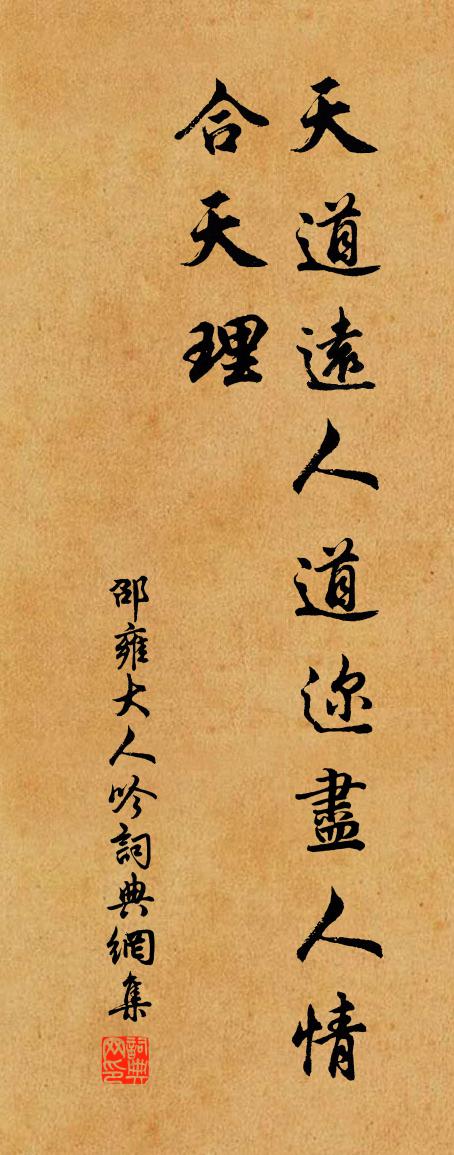 天道遠人道迩盡人情
合天理
邵雍大人吟詞典網集
詞典網印